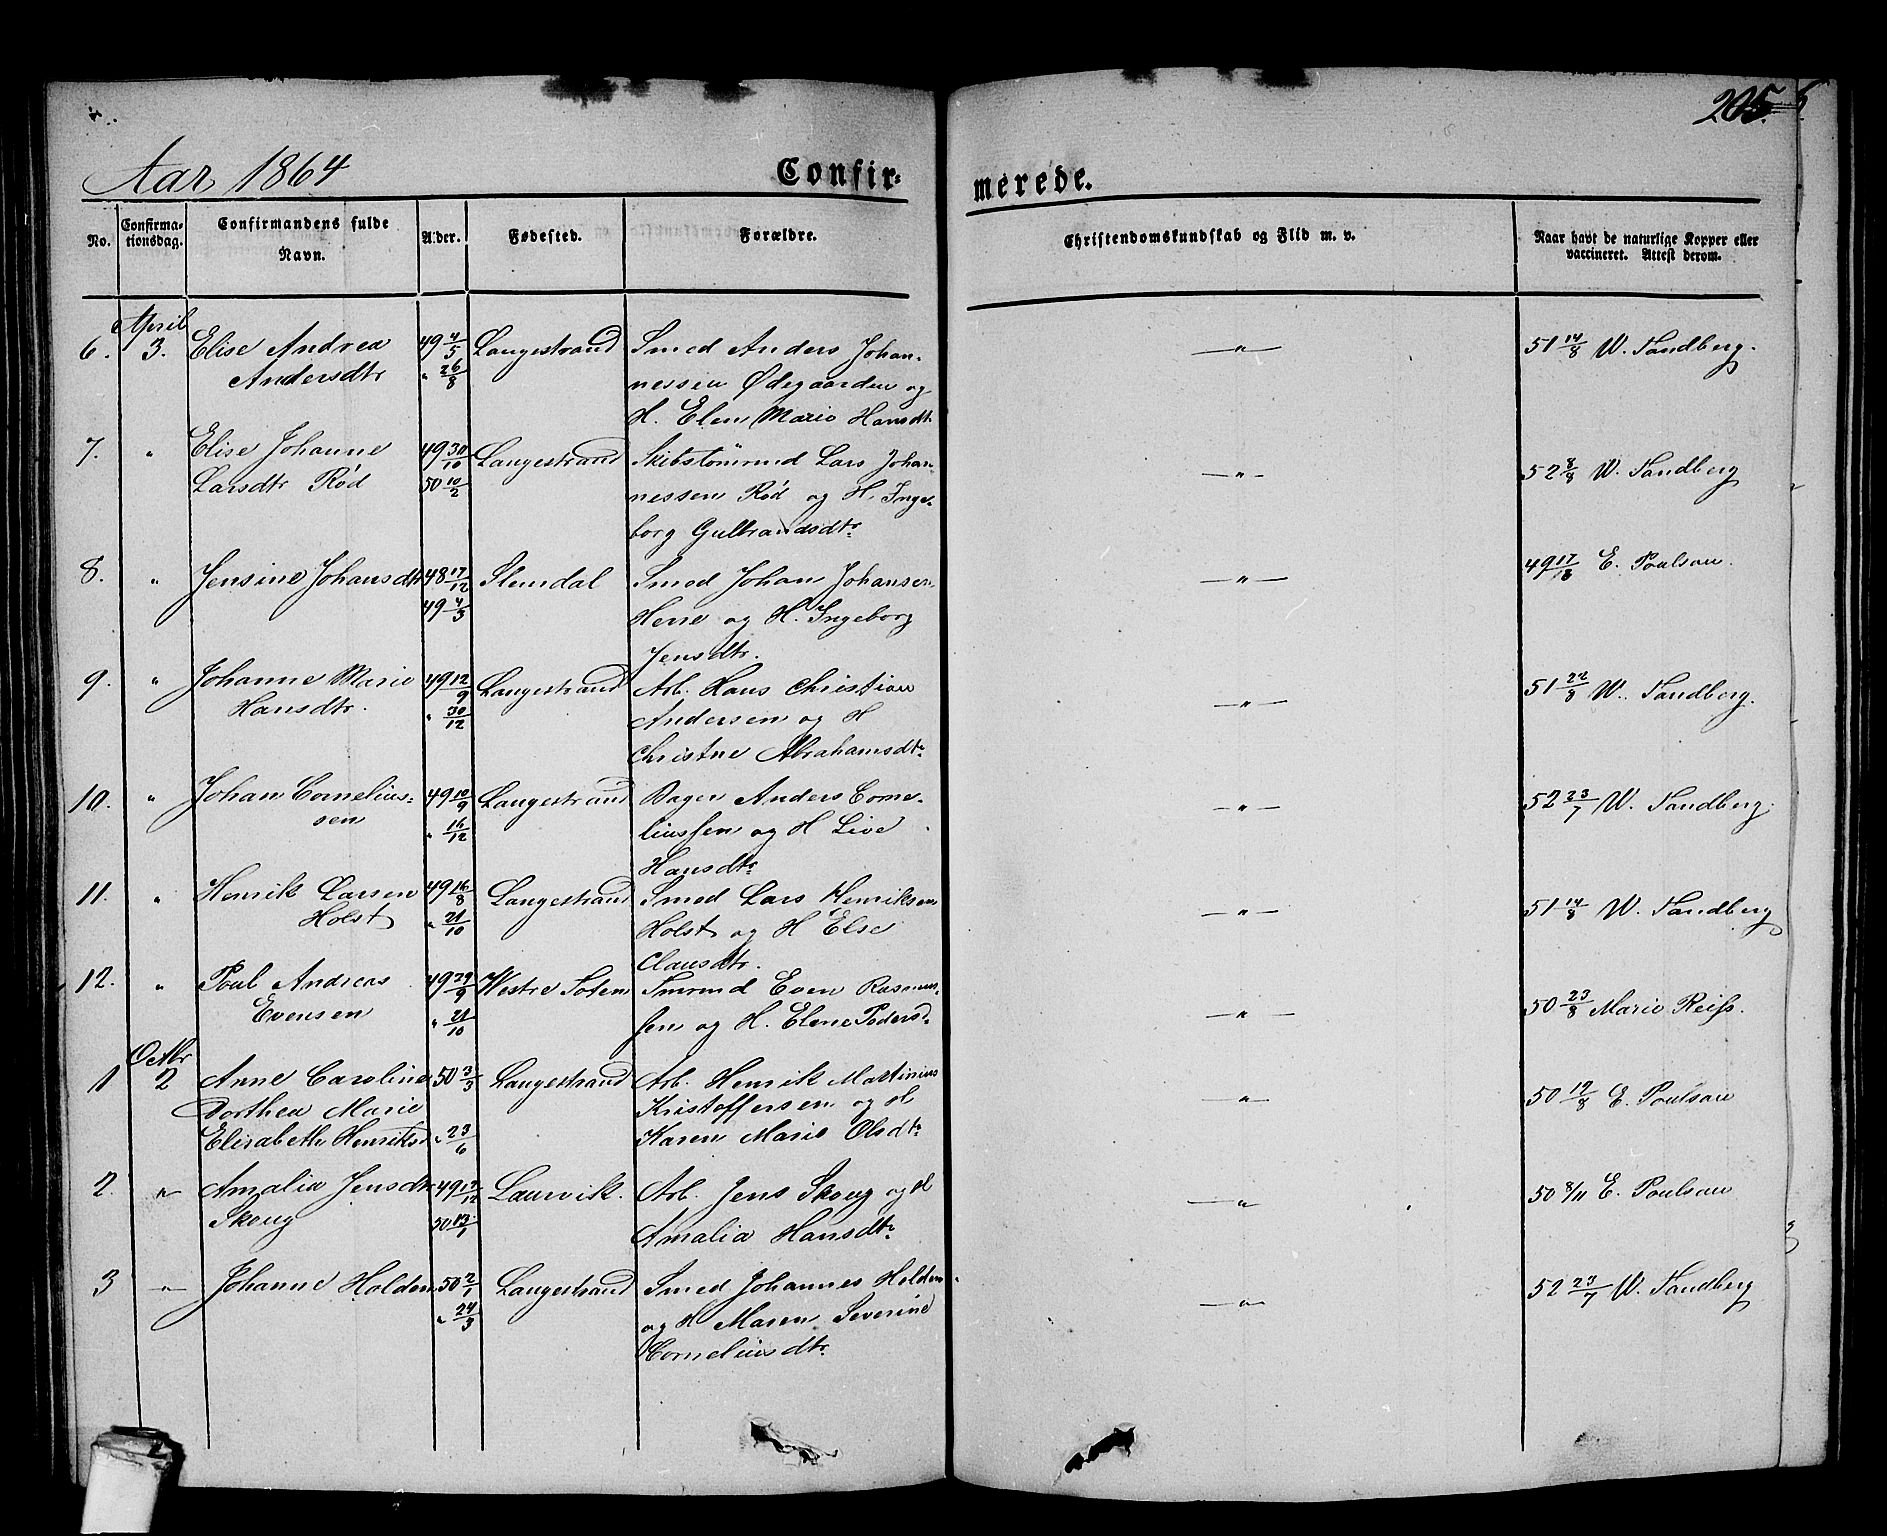 205.
Aar 1864 Confir= merede.
No. Confirma= tionsdag. Confirmandens fulde Navn. Alder. Fødested. Forældre. Christendomskundskab og Flid m. v. Naar havt de naturlige Kopper eller vaccineret. Attest derom.
April
6. 3. Elise Andrea 49 4/5 Langestrand Smed Anders Johan- — " — 51 14/8 W. Sandberg.
Andersdtr " 26/8 nessen Ødegaarden og
H. Elen Marie Hansdtr
7. " Elise Johanne 49 30/10 Langestrand Skibstømmd Lars Johan- — " — 52 8/8 W. Sandberg
Larsdtr Rød 50 10/2 nessen Rød og H. Inge-
borg Gulbrandsdtr
8. " Jensine Johansdtr 48 17/12 Slemdal Smed Johan Johansen — " — 49 17/8 E. Poulsen.
49 4/3 og H. Ingeborg
Jensdtr.
9. " Johanne Marie 49 12/9 Langestrand Arb. Hans Christian — " — 51 22/8 W. Sandberg.
Hansdtr. " 30/12 Andersen og H
Christne Abrahamsdtr
10. " Johan Cornelius= 49 10/9 Langestrand Bager Anders Corne- — " — 52 23/7 W. Sandberg.
sen " 16/12 liussen og H Live
Hansdtr
11. " Henrik Larsen 49 16/8 Langestrand Smed Lars Henriksen — " — 51 14/8 W. Sandberg
Holst " 21/10 Holst og H Else
Clausdtr.
12. " Poul Andreas 49 29/9 Westre Toten Even Rasmus- — " — 50 23/8 Marie Reiss.
Evensen " 21/10 sen og H. Elene Pedersd.
Octbr
1 2 Anne Caroline 50 3/3 Langestrand Arb. Henrik Martinius — " — 50 19/8 E. Poulsen
Dorthea Marie Kristoffersen og H
Elisabeth Henriksd " 23/6 Karen Marie Olsdtr
2. " Amalia Jensdtr 49 17/12 Laurvik. Arb. Jens Skoug og H — " — 50 8/11 E. Poulsen
Skoug 50 13/1 Amalia Hansdtr
3 " Johanne Holden 50 2/1 Langestrand Smed Johannes Holden — " — 52 23/7 W. Sandberg
" 24/3 og H Maren Severine
Corneliusdtr